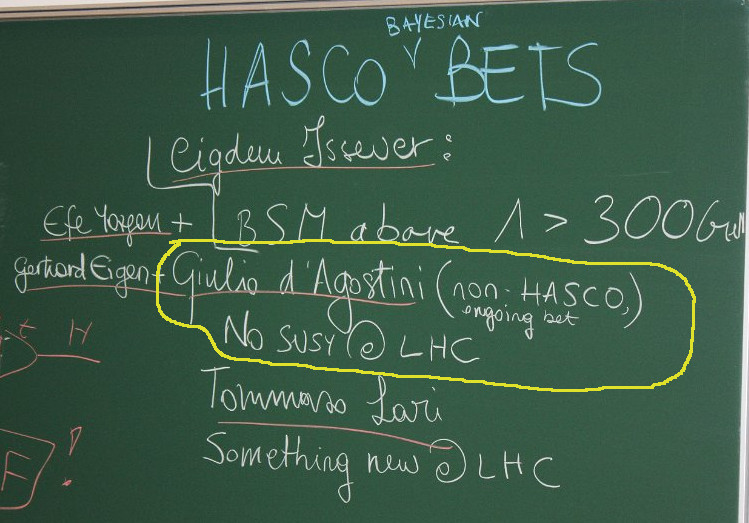 BAYESIAN
HASCO BETS
Cigdem Issever:
Efe Yazgan + BSM above Λ > 300
Gerhard Eigen + Giulio d'Agostini (non-HASCO,
ongoing bet)
No SUSY @ LHC
t H
Tommaso Lari
F !
Something new @ LHC